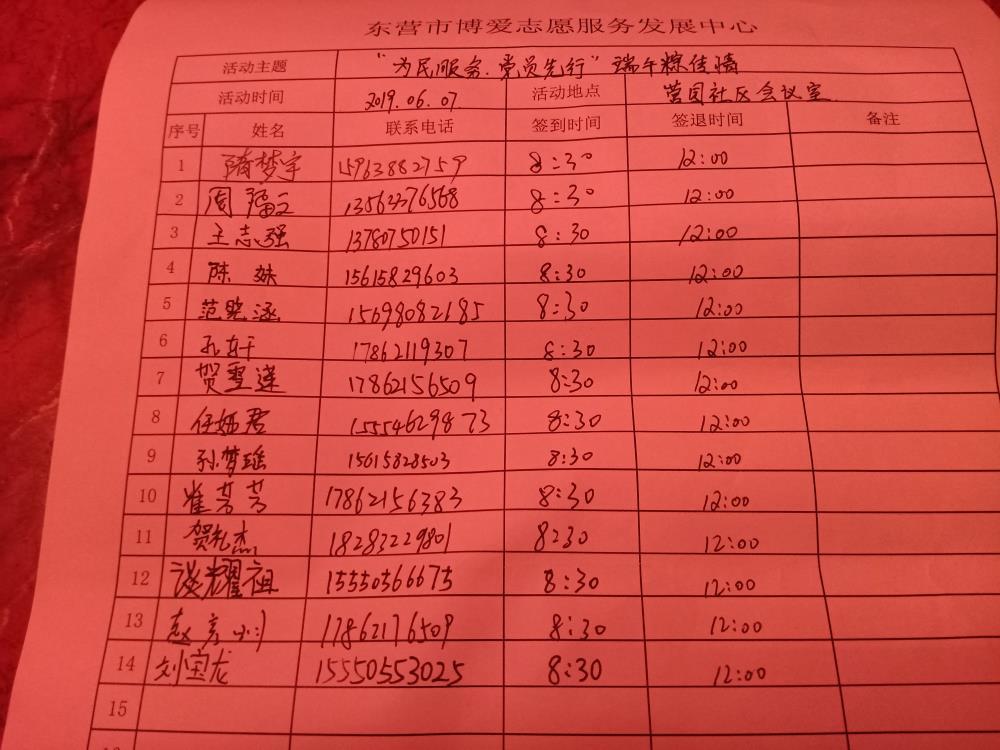 东营市博爱志愿服务发展中心
活动主题 “为民服务.党员先行”端午粽佳情
活动时间 2019.06.07. 活动地点 营园社区会议室
序号 姓名 联系电话 签到时间 签退时间 备注
1 隋梦宇 15963882759 8:30 12:00
2 周 13562276568 8:30 12:00
3 王志强 13780750151 8:30 12:00
4 陈妹 15615829603 8:30 12:00
5 范晓涵 15698082185 8:30 12:00
6 孔轩 17862119307 8:30 12:00
7 贺雪莲 17862156509 8:30 12:00
8 任姬君 15554629873 8:30 12:00
9 孙梦瑶 15615828503 8:30 12:00
10 崔芳芳 17862156383 8:30 12:00
11 贺礼杰 18283229801 8:30 12:00
12 谈耀祖 15550566675 8:30 12:00
13 赵彦 17862176509 8:30 12:00
14 刘宝龙 15550553025 8:30 12:00
15